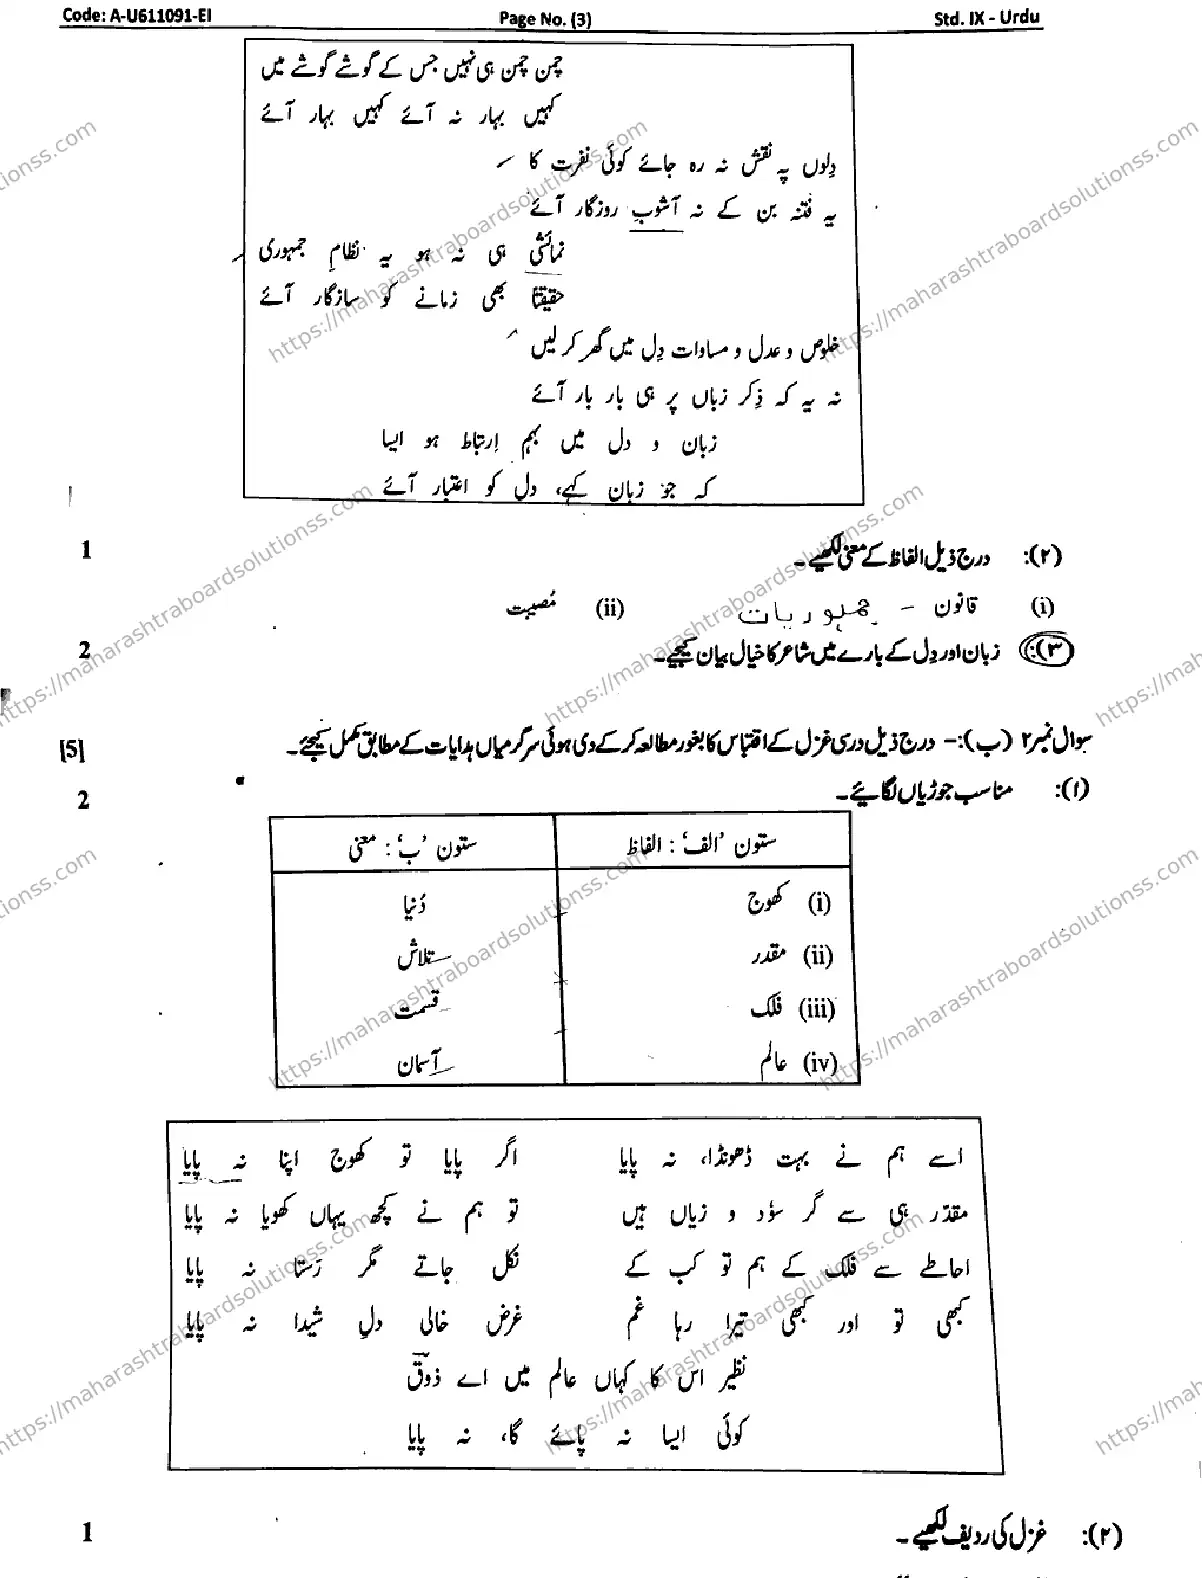 Code: A-U611091-EI Page No. (3) Std. IX - Urdu
چمن چمن ہی نہیں جس کے گوشے گوشے میں
کہیں بہار نہ آئے کہیں بہار آئے
دِلوں پہ نقش نہ رہ جائے کوئی نفرت کا
یہ فتنہ بن کے نہ آشوبِ روزگار آئے
نمائشی ہی نہ ہو یہ نظامِ جمہوری
حقیقتاً بھی زمانے کو سازگار آئے
خلوص و عدل و مساوات دِل میں گھر کرلیں
نہ یہ کہ ذِکر زباں پر ہی بار بار آئے
زبان و دل میں بہم اِرتباط ہو ایسا
کہ جو زبان کہے، دل کو اعتبار آئے
(۲): درج ذیل الفاظ کے معنی لکھیے۔ 1
(i) قانون - جمہوریات (ii) مُصیبت
(۳): زبان اور دِل کے بارے میں شاعر کا خیال بیان کیجیے۔ 2
سوال نمبر ۲ (ب):- درج ذیل درسی غزل کے اقتباس کا بغور مطالعہ کر کے دی ہوئی سرگرمیاں ہدایات کے مطابق مکمل کیجیے۔ [5]
(۱): مناسب جوڑیاں لگائیے۔ 2
ستون 'الف' : الفاظ ستون 'ب' : معنی
(i) کھوج دُنیا
(ii) مقدر تلاش
(iii) فلک قسمت
(iv) عالم آسمان
اسے ہم نے بہت ڈھونڈا، نہ پایا اگر پایا تو کھوج اپنا نہ پایا
مقدّر ہی سے گر سوٗد و زیاں ہیں تو ہم نے کچھ یہاں کھویا نہ پایا
احاطے سے فلک کے ہم تو کب کے نکل جاتے مگر رَستا نہ پایا
کبھی تو اور کبھی تیرا رہا غم غرض خالی دلِ شیدا نہ پایا
نظیر اس کا کہاں عالم میں اے ذوقؔ
کوئی ایسا نہ پائے گا، نہ پایا
(۲): غزل کی ردیف لکھیے۔ 1
https://maharashtraboardsolutionss.com